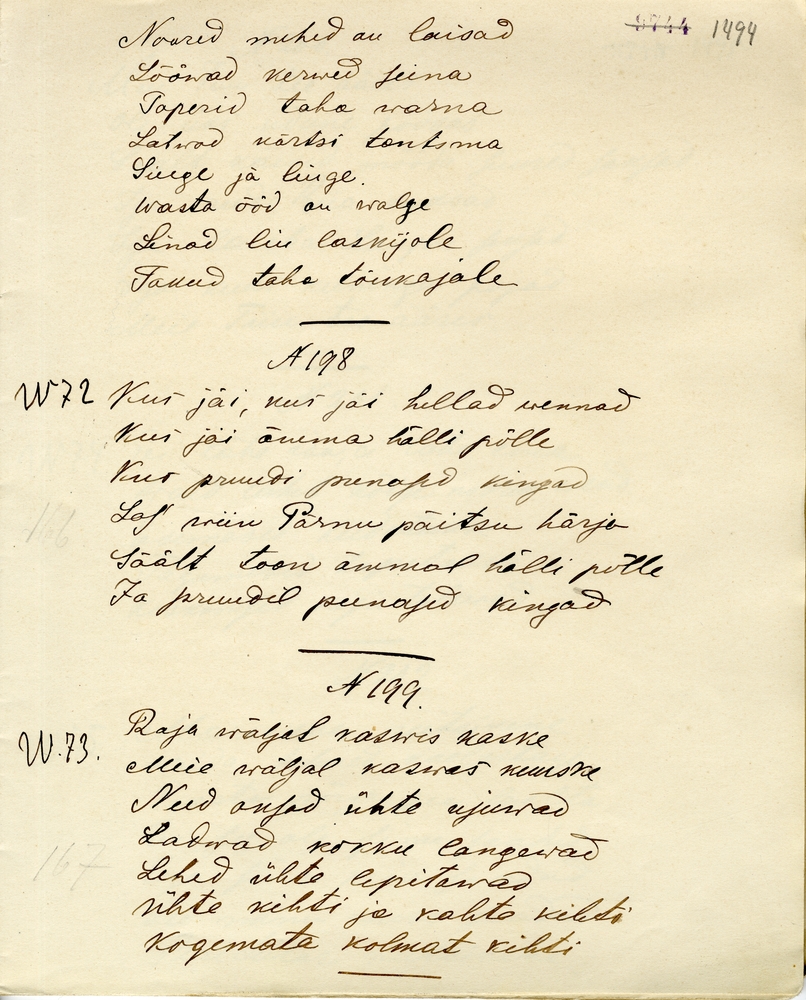 1494
Noored mehed on laisad
Lööwad kerwed seina
Taperid taha warna
Latwad kõrtsi tantsma
Siuge ja liuge.
Wasta ööd on walge
Linad liu laskijale
Takud taha tõukajale
N 198
W 72 Kus jäi, kus jäi hellad wennad
Kus jäi ämma hälli põlle
Kus pruudi punased kingad
Las wiin Pärnu päitsu härja
Säält toon ämmal hälli põlle
Ja pruudil punased kingad
166
N 199.
W. 73. Raja wäljal kaswis kaske
Meie wäljal kaswas kuuske
Need onsad ühte ujuwad
Ladwad kokku langewad
Lehed ühte lepitawad
Ühte kihti ja kahta kihti
Kogemata kolmat kihti
167